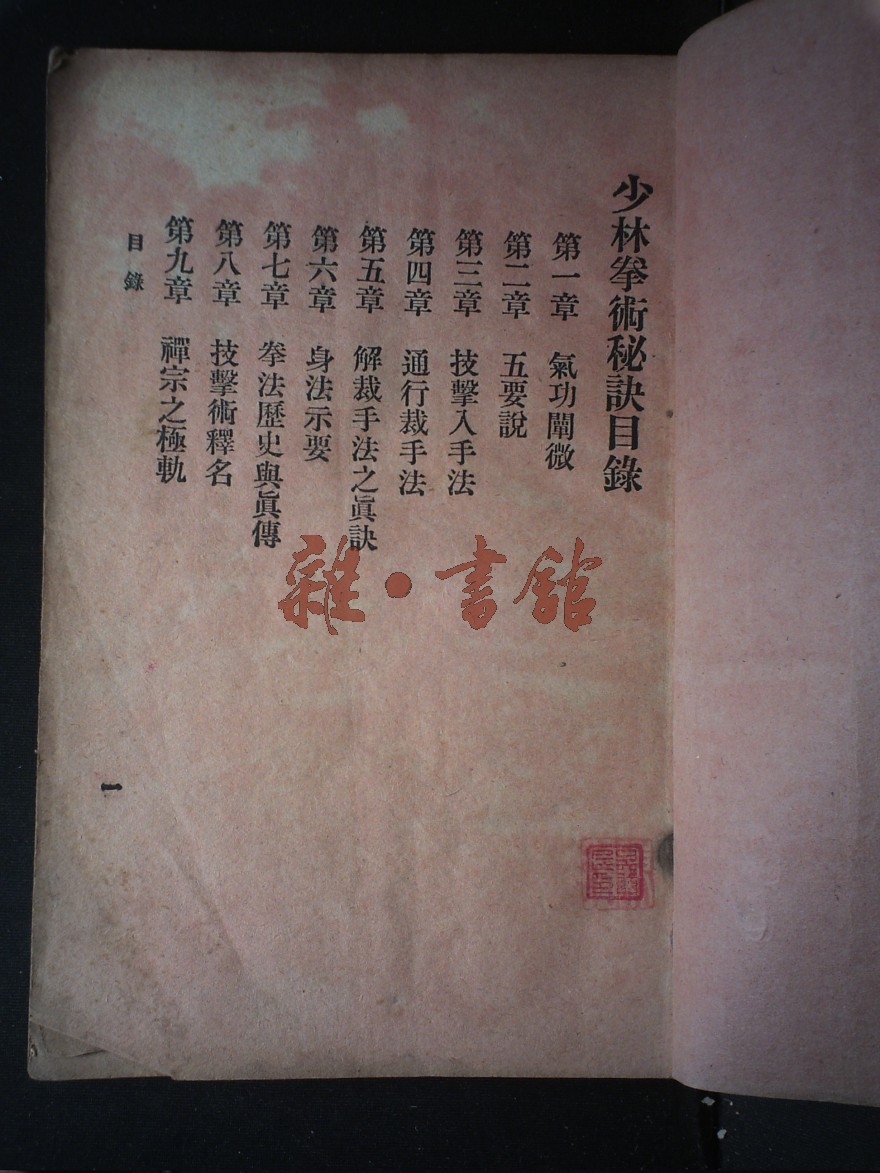 少林拳術秘訣目錄
第一章 氣功闡微
第二章 五要說
第三章 技擊入手法
第四章 通行裁手法
第五章 解裁手法之眞訣
第六章 身法示要
第七章 拳法歷史與眞傳
第八章 技擊術釋名
第九章 禪宗之極軌
目錄
一
雜·書館